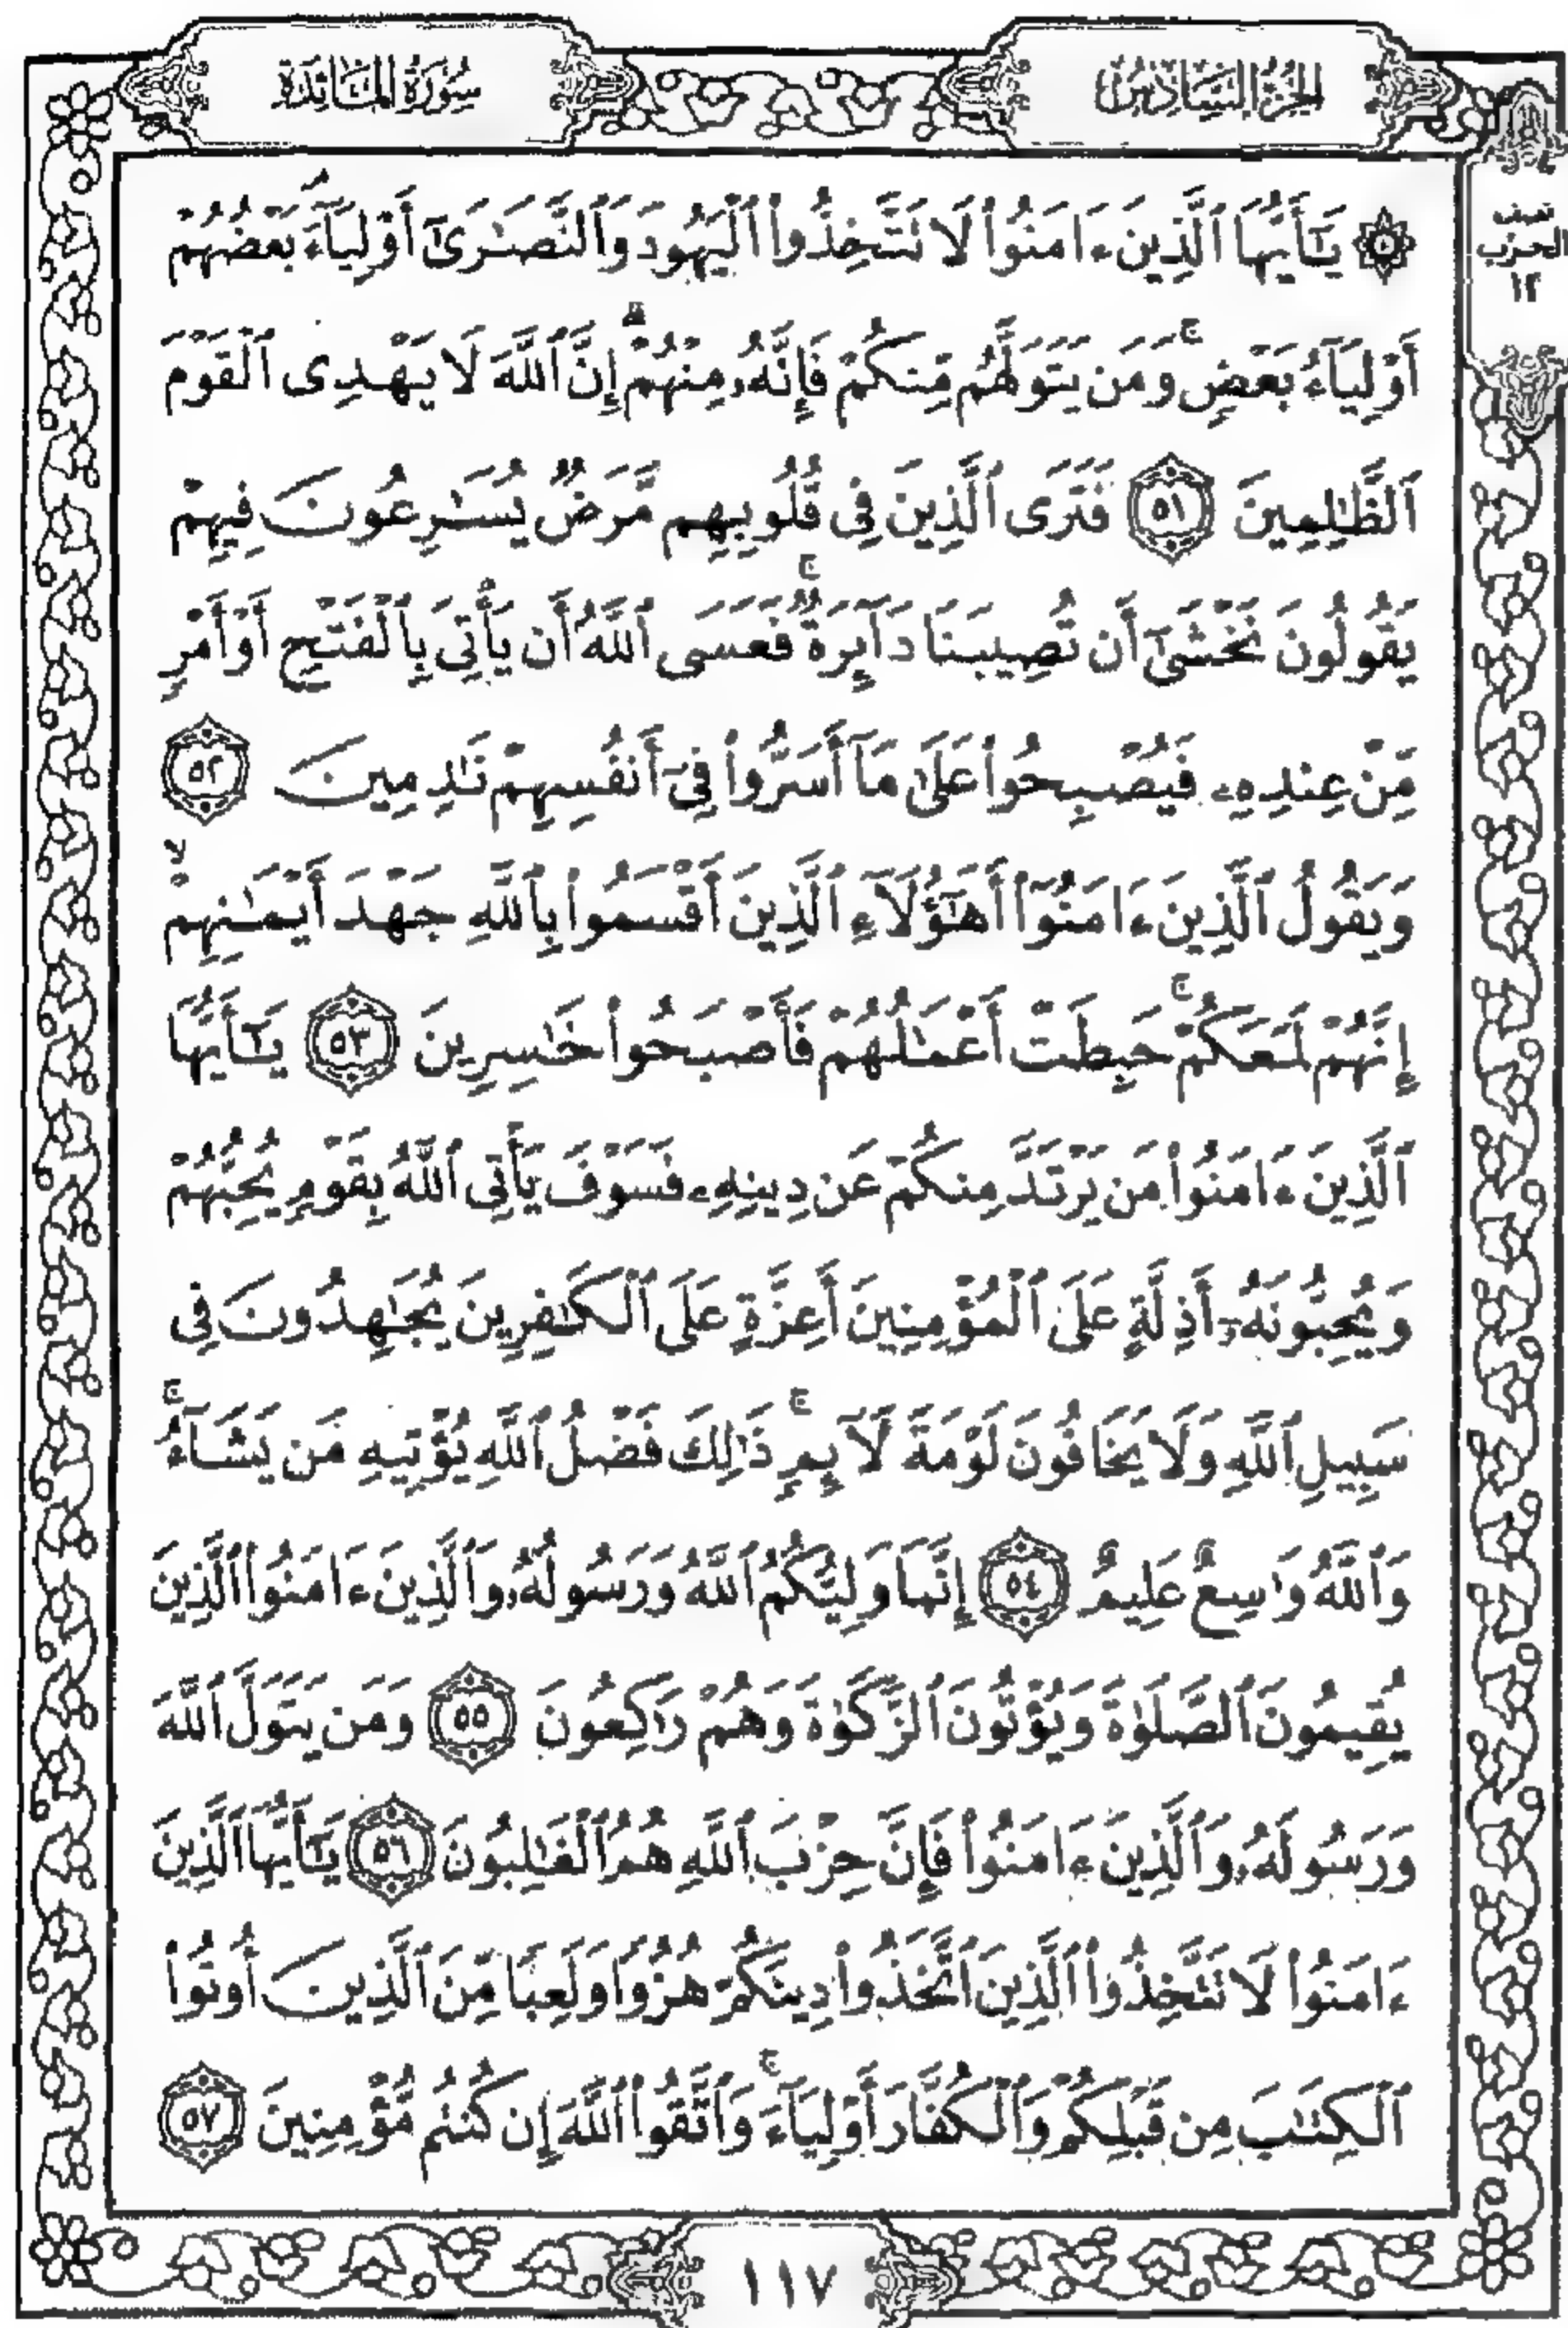 الجزء السادس
سورة المائدة
نصف
الحزب
١٢
۞ يَٰٓأَيُّهَا ٱلَّذِينَ ءَامَنُوا۟ لَا تَتَّخِذُوا۟ ٱلْيَهُودَ وَٱلنَّصَٰرَىٰٓ أَوْلِيَآءَ ۘ بَعْضُهُمْ
أَوْلِيَآءُ بَعْضٍ ۚ وَمَن يَتَوَلَّهُم مِّنكُمْ فَإِنَّهُۥ مِنْهُمْ ۗ إِنَّ ٱللَّهَ لَا يَهْدِى ٱلْقَوْمَ
ٱلظَّٰلِمِينَ ٥١ فَتَرَى ٱلَّذِينَ فِى قُلُوبِهِم مَّرَضٌ يُسَٰرِعُونَ فِيهِمْ
يَقُولُونَ نَخْشَىٰٓ أَن تُصِيبَنَا دَآئِرَةٌ ۚ فَعَسَى ٱللَّهُ أَن يَأْتِىَ بِٱلْفَتْحِ أَوْ أَمْرٍ
مِّنْ عِندِهِۦ فَيُصْبِحُوا۟ عَلَىٰ مَآ أَسَرُّوا۟ فِىٓ أَنفُسِهِمْ نَٰدِمِينَ ٥٢
وَيَقُولُ ٱلَّذِينَ ءَامَنُوٓا۟ أَهَٰٓؤُلَآءِ ٱلَّذِينَ أَقْسَمُوا۟ بِٱللَّهِ جَهْدَ أَيْمَٰنِهِمْ ۙ
إِنَّهُمْ لَمَعَكُمْ ۚ حَبِطَتْ أَعْمَٰلُهُمْ فَأَصْبَحُوا۟ خَٰسِرِينَ ٥٣ يَٰٓأَيُّهَا
ٱلَّذِينَ ءَامَنُوا۟ مَن يَرْتَدَّ مِنكُمْ عَن دِينِهِۦ فَسَوْفَ يَأْتِى ٱللَّهُ بِقَوْمٍ يُحِبُّهُمْ
وَيُحِبُّونَهُۥٓ أَذِلَّةٍ عَلَى ٱلْمُؤْمِنِينَ أَعِزَّةٍ عَلَى ٱلْكَٰفِرِينَ يُجَٰهِدُونَ فِى
سَبِيلِ ٱللَّهِ وَلَا يَخَافُونَ لَوْمَةَ لَآئِمٍ ۚ ذَٰلِكَ فَضْلُ ٱللَّهِ يُؤْتِيهِ مَن يَشَآءُ ۚ
وَٱللَّهُ وَٰسِعٌ عَلِيمٌ ٥٤ إِنَّمَا وَلِيُّكُمُ ٱللَّهُ وَرَسُولُهُۥ وَٱلَّذِينَ ءَامَنُوا۟ ٱلَّذِينَ
يُقِيمُونَ ٱلصَّلَوٰةَ وَيُؤْتُونَ ٱلزَّكَوٰةَ وَهُمْ رَٰكِعُونَ ٥٥ وَمَن يَتَوَلَّ ٱللَّهَ
وَرَسُولَهُۥ وَٱلَّذِينَ ءَامَنُوا۟ فَإِنَّ حِزْبَ ٱللَّهِ هُمُ ٱلْغَٰلِبُونَ ٥٦ يَٰٓأَيُّهَا ٱلَّذِينَ
ءَامَنُوا۟ لَا تَتَّخِذُوا۟ ٱلَّذِينَ ٱتَّخَذُوا۟ دِينَكُمْ هُزُوًا وَلَعِبًا مِّنَ ٱلَّذِينَ أُوتُوا۟
ٱلْكِتَٰبَ مِن قَبْلِكُمْ وَٱلْكُفَّارَ أَوْلِيَآءَ ۚ وَٱتَّقُوا۟ ٱللَّهَ إِن كُنتُم مُّؤْمِنِينَ ٥٧
١١٧